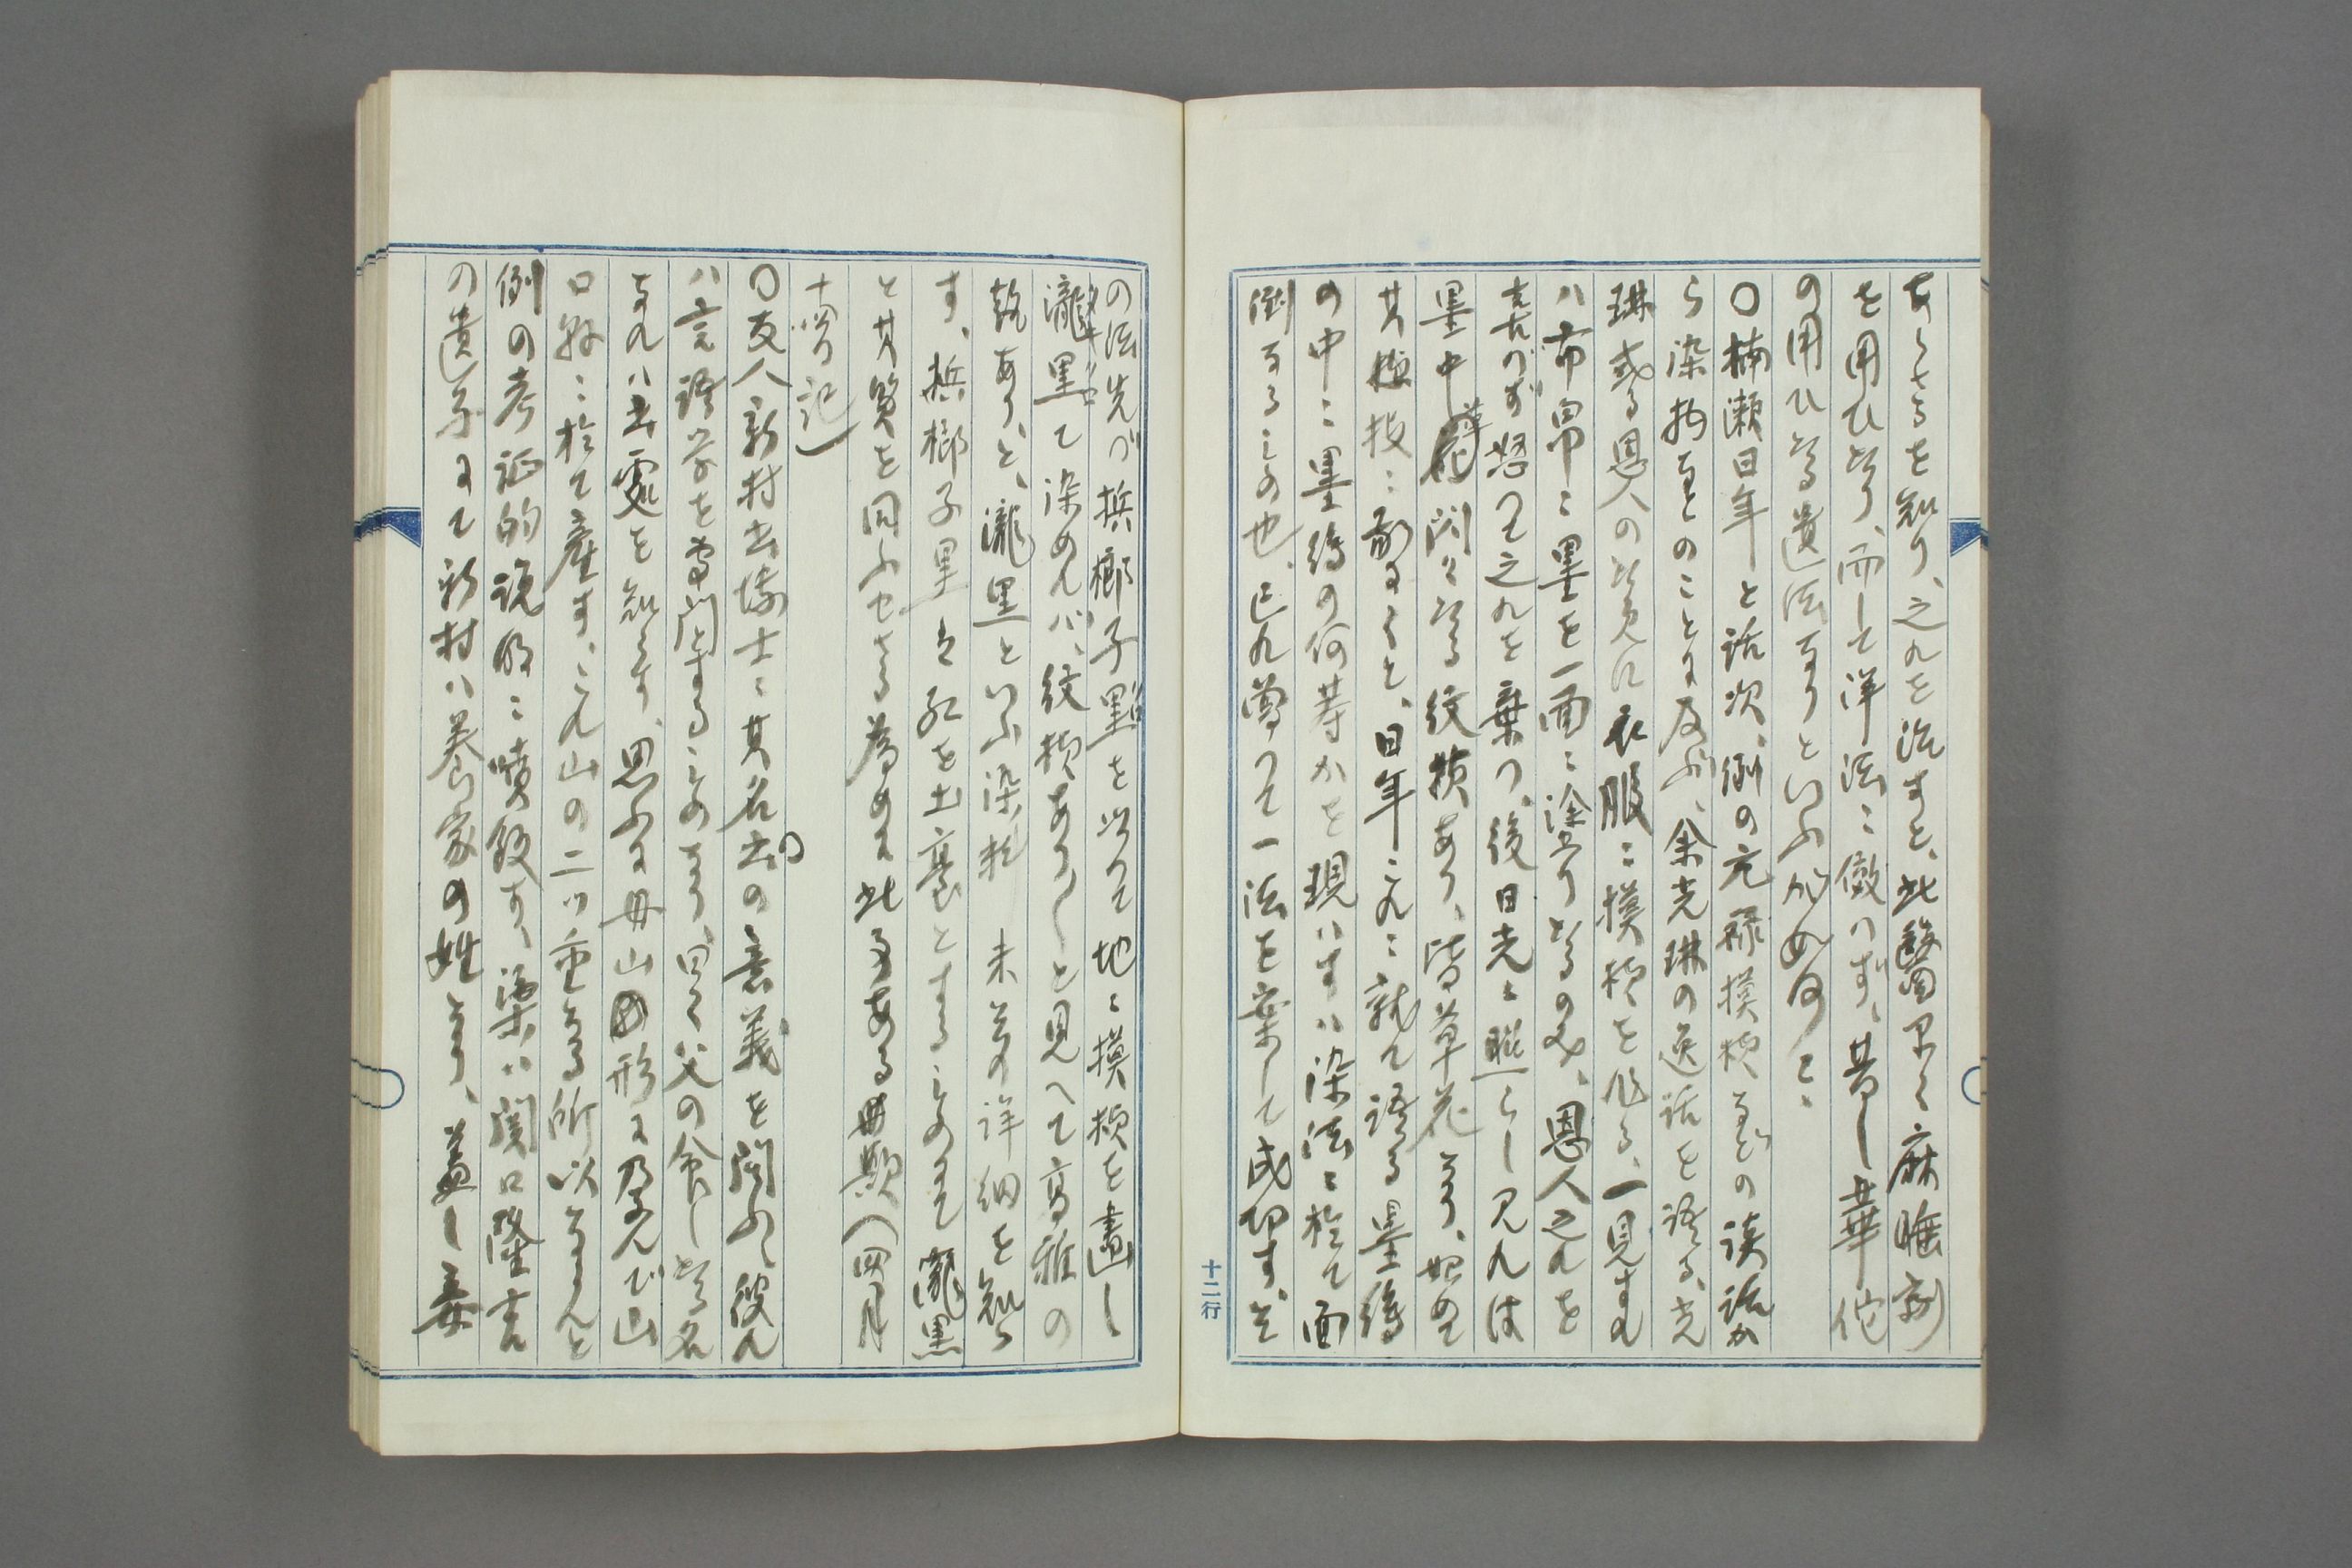 あらさるを知り、之れを治すと、此醫早く麻睡剤
を用ひたり、而して洋法に倣はず、昔し華佗
の用ひたる遺法なりといふ如何にも
〇楠瀬日年と話次、例の元禄摸様などの談話か
ら染物などのことに及ぶ、余光琳の逸話を語る、光
琳或る恩人の為めに衣服に摸様を作る、一見すれ
ハ布帛に墨を一面に塗りたるのみ、恩人之れを
喜ばず怒つて之れを棄つ、後日光に照らし見れは
墨中薄 閃々たる紋様あり、皆草花なり、始めて
其極技に敬すと、日年これに就て語る墨絵
の中に墨絵の何等かを現はすハ染法に於て面
倒なるもの也、己れ嘗つて一法を案して成功す、そ
の法先づ梹榔子黒を以つて地に摸様を畫し
瀧黒て染めれバ、紋様ありありと見へて高雅の
致あり、と、瀧黒といふ染料 未だ其詳細を知ら
す、梹榔子黒は紅を土臺とするものにて瀧黒
と其質を同ふせさる為めに此事ある歟(四月
十四日記)
〇友人新村出博士に其名出の意義を問ふ、彼れ
ハ言語学を専門とするものなり、曰く父の命したる名
なれハ出處を知らす、思ふに毋山形に因んで山
口縣に於て産す、これ山の二ツ重なる所以ならんと
例の考証的説明に噴飯す、渠ハ関口隆吉
の遺子にて新村ハ養家の姓なり、蓋し妾
十二行